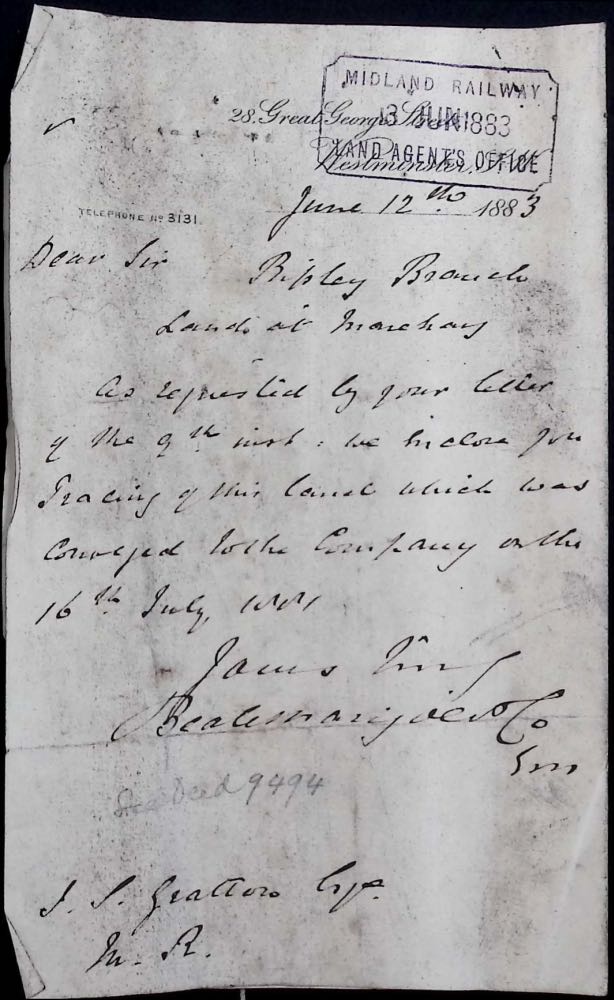 MIDLAND RAILWAY
13 JUN 1883
LAND AGENT'S OFFICE
28. Great George Street
Westminster, S.W.
TELEPHONE Nº 3131
June 12th 1883
Dear Sir
Ripley Branch
Land at Marehay
As requested by your letter
of the 9th inst: we inclose you
Tracing of this land which was
conveyed to the Company on the
16th July, 1881
Yours truly
Beale Marigold & Co
See Deed 9494
J. S. Gratton Esqr.
M. R.